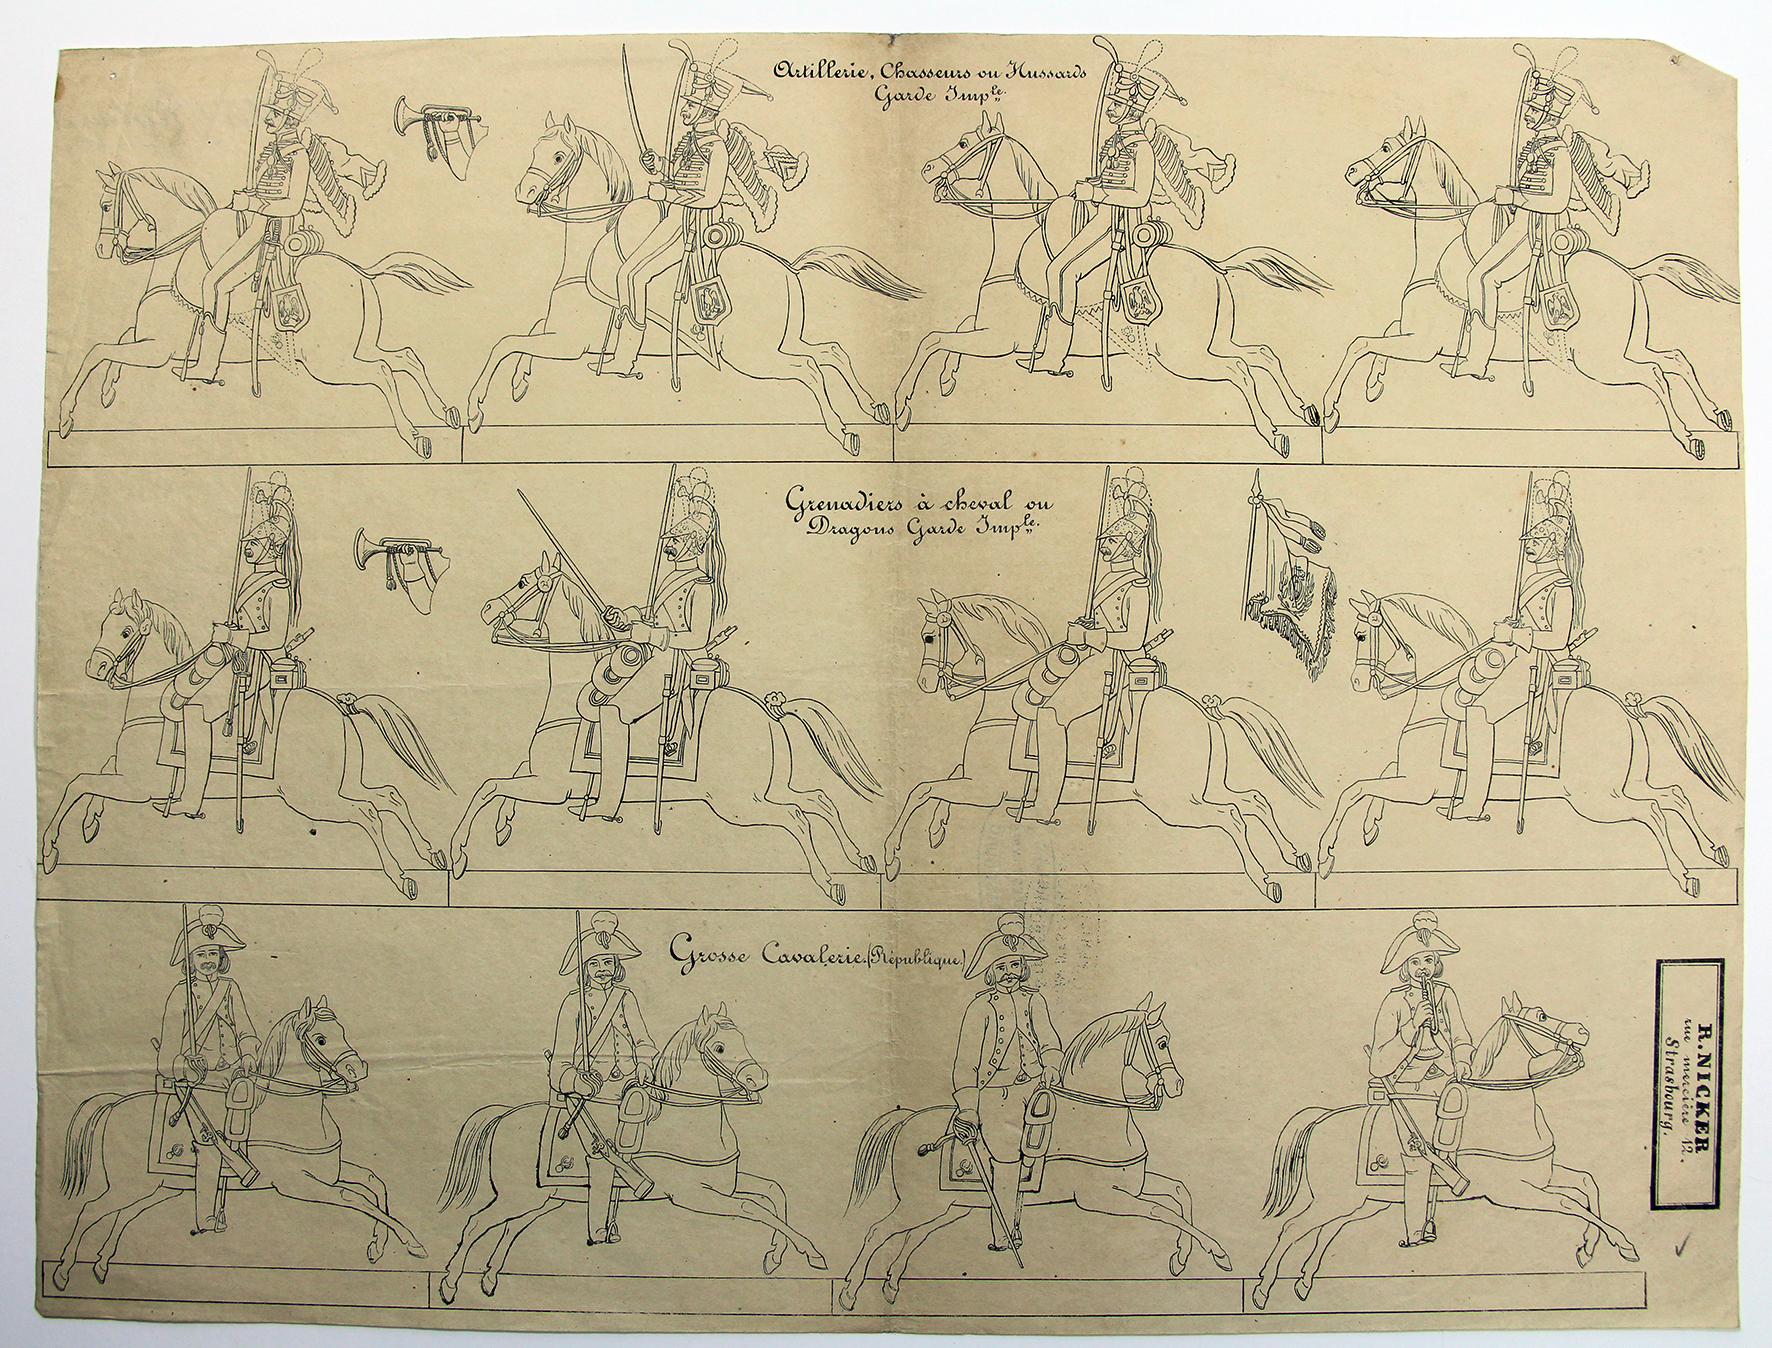 Artillerie, Chasseurs ou Hussards
Garde Imp.le
Grenadiers à cheval ou
Dragons Garde Imp.le
Grosse Cavalerie.(République.)
R. NICKER
rue mercière 12.
Strasbourg.